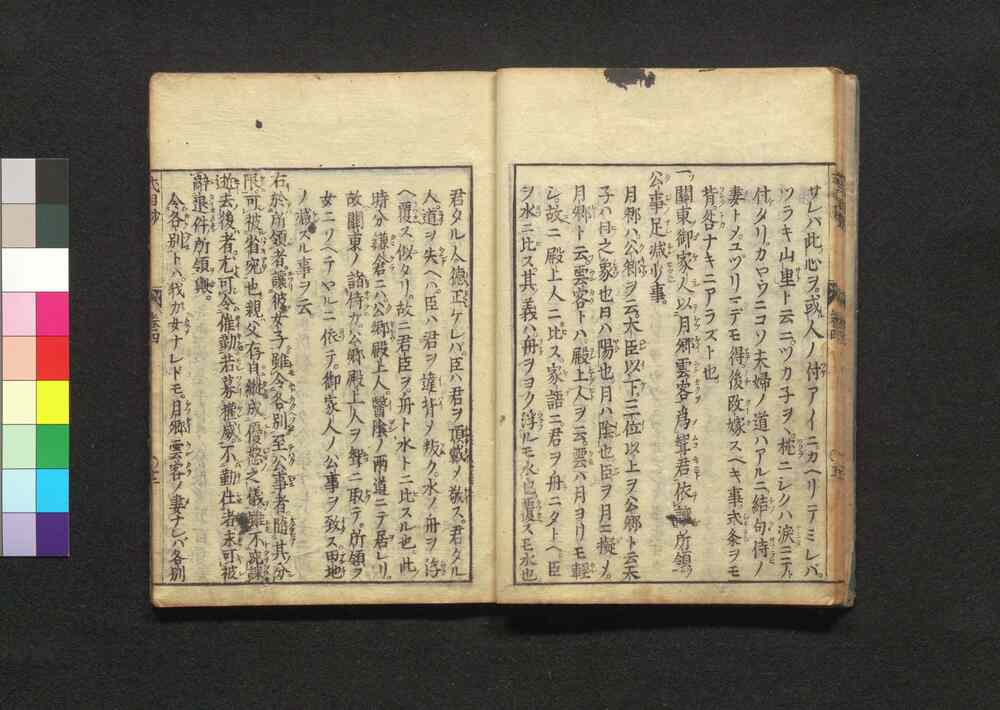 サレバ此心ヲ。或人ノ侍アイニカヘリテミレバ。
ツラキ山里ト云ニツカ子ヲ。桃ニシクハ涙ニテ
付タリ。カヤウニコソ夫婦ノ道ハアルニ結句侍ノ
妻トメユヅリマデモ得後改嫁スヘキ事式条ヲモ
背咎ナキニアラズト也
一關東御家人以月卿雲客為聟君依讓所領
公事足減少事
月卿ハ公卿ヲ云大臣以下三位以上ヲ公卿ト云天
子ハ日之象也日ハ陽也月ハ陰也臣ヲ月ニ擬メ。
月卿ト云雲客トハ殿上人ヲ云。雲ハ月ヨリモ輕
シ。故ニ殿上人ニ比ス。家語ニ君ヲ舟ニタトヘ。臣
ヲ水ニ比ス。其義ハ舟ヲヨク浮ルモ水也。覆スモ水也
君タル人徳正ケレバ。臣ハ君ヲ頂戴メ敬ス。君タル
人。道ヲ失ヘハ。臣ハ君ヲ違背メ叛ク。水ノ舟ヲ浮
ヘ覆スニ似タリ。故ニ君臣ヲ。舟ト水トニ比スル也。此
時分鎌倉ニハ公卿殿上人醫陰ノ兩道ニテ居レリ。
故關東ノ諸侍カ公卿殿上人ヲ聟ニ取テ。所領ヲ
女ニワケテヤルニ依テ。御家人ノ公事ヲ致ス田地
ノ減スル事ヲ云
右於所領者讓彼女子雖令各別至公事者隨其分
限。可被省宛也親父存日縱成優恕之儀雖不宛課
逝去後者尤可令催勤若募權威不勤仕者永可被
辭退件所領與。
令各別トハ我カ女ナレドモ。月卿雲客ノ妻ナレバ各別